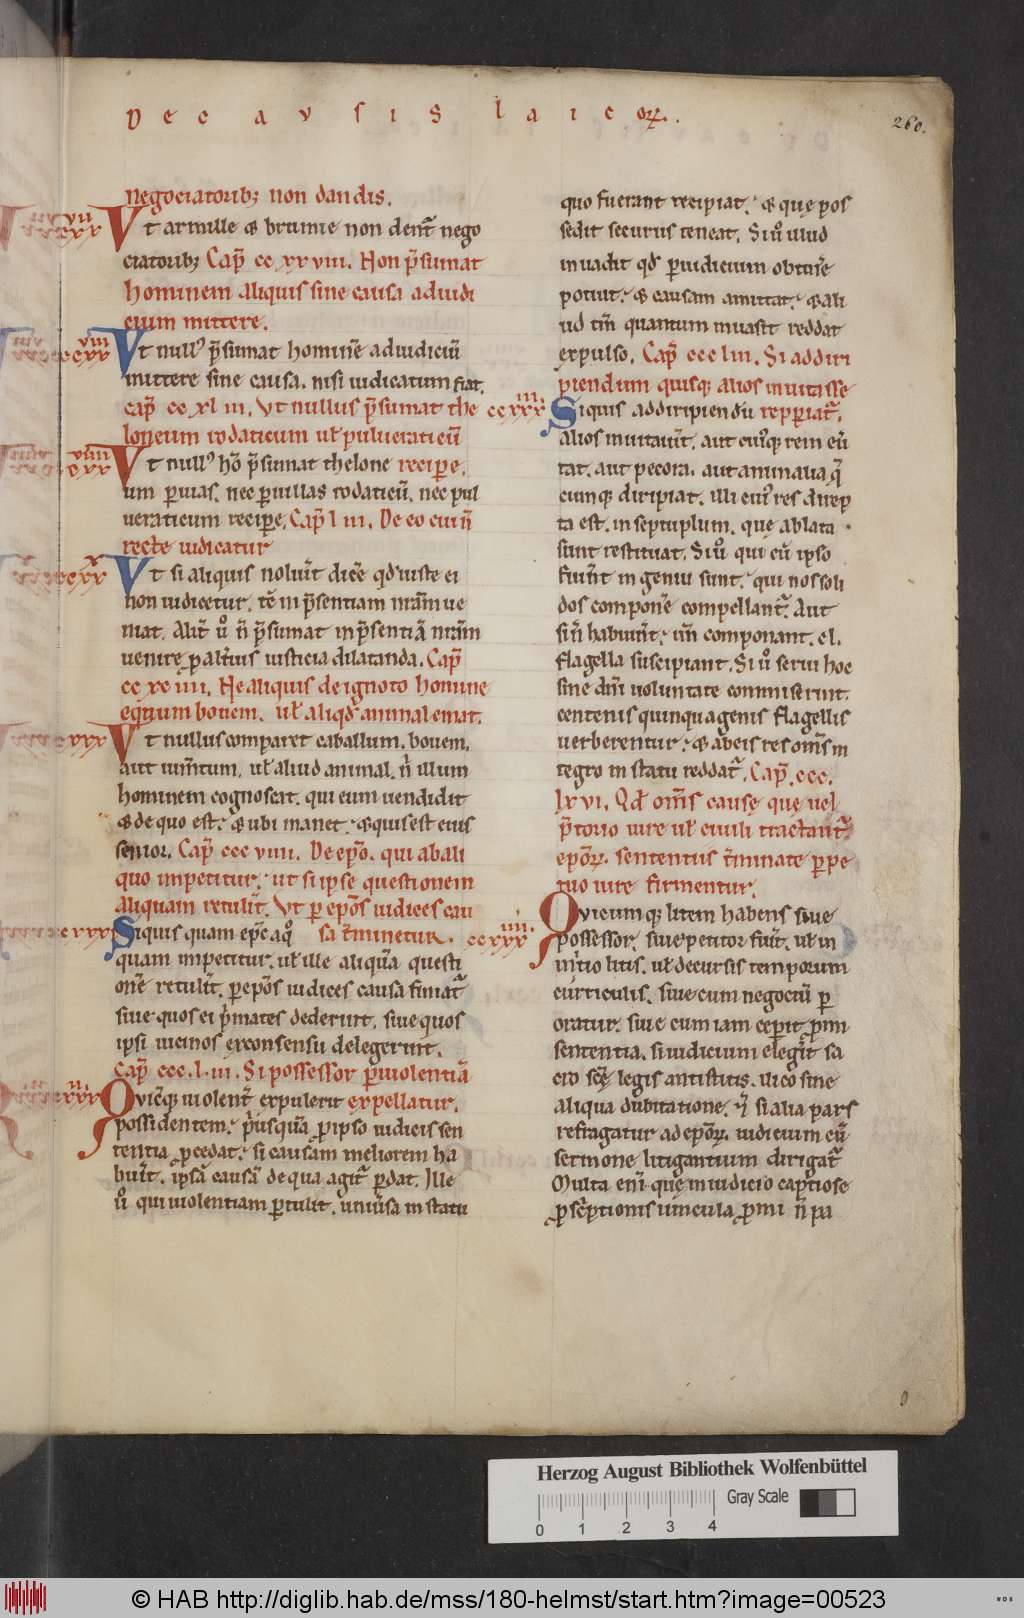 De causis laicoꝝ.
260.
negociatoribꝫ non dandis.
ccxxvii
Vt armille & brunie non dent̄ nego
ciatoribꝫ Cap̄ cc xxviii. Non p̄sumat
hominem aliquis sine causa ad iudi
cium mittere.
ccxxviii
Vt nullꝰ p̄sumat homin̄e ad iudiciū
mittere sine causa. nisi iudicatum fiat.
cap̄ cc xl iii. Vt nullus p̄sumat the
loneum rodaticum ul̄ pulueraticū
ccxxviiii
Vt nullꝰ hō p̄sumat thelone recipe.
um ꝑ uias. nec ꝑ uillas rodaticū. nec pul
ueraticum recipe. Cap̄ l iii. De eo cui n̄
recte iudicatur
ccxxx
Vt si aliquis noluīt dic̄e qd̄ iuste ei
non iudicetur. tc̄ in p̄sentiam nr̄am ue
niat. Alit̄ uͦ n̄ p̄sumat in p̄sentiā nr̄am
uenire ꝑ alt̄ius iusticia dilatanda. Cap̄
cc xc iiii. Ne aliquis de ignoto homine
equum bouem. ul̄ aliqd̄ animal emat.
Vt nullus comparet caballum. bouem.
aut iumt̄um. ul̄ aliud animal. n̄ illum
hominem cognoscat. qui eum uendidit
& de quo est. & ubi manet. & quis est eius
senior. Cap̄ ccc viiii. De ep̄o. qui ab ali
quo impetitur. ut si ipse questionem
aliquam retulīt. Vt ꝑ ep̄os iudices cau
Siquis quam ep̄c aqͦ sa t̄minetur.
quam impetitur. ul̄ ille aliquā questi
on̄e retulīt. ꝑ ep̄os iudices causa finiat̄
siue quos ei p̄mates dederint. siue quos
ipsi uicinos ex consensu delegerint.
Cap̄ ccc. l. iii. Si possessor ꝑ uiolentiā
Quicq̄ uiolent̄ expulerit expellatur.
possidentem. p̄usquā ꝓ ipso iudicis sen
tentia ꝓcedat. si causam meliorem ha
buīt. ipsā causā de qua agit̄ ꝑdat. Ille
uͦ qui uiolentiam ꝑtulit. uniūsa in statu
quo fuerant recipiat. & que pos
sedit securus teneat. Si uͦ illud
inuadit qd̄ ꝑ iudicium obtin̄e
potuit. & causam amittat. & ali
ud tm̄ quantum inuasit reddat
expulso. Cap̄ ccc liii. Si ad diri
piendum quisqꝫ alios inuitasse
ccxxxiii.
Siquis ad diripiendū repꝑiat̄.
alios inuitauīt. aut cuiꝰqꝫ rem eū
tat. aut pecora. aut animalia q̄
cumqꝫ diripiat. illi cuiꝰ res direp
ta est. in septuplum. que ablata
sunt restituat. Si uͦ qui cū ipso
fuīnt ingenui sunt. qui nos soli
dos compon̄e compellant̄. Aut
si n̄ habuīnt. un̄ componant. el.
flagella suscipiant. Si uͦ serui hoc
sine dn̄i uoluntate commiserint.
centenis quinquagenis flagellis
uerberentur. & ab eis res om̄s in
tegro in statu reddat̄. Cap̄. ccc.
lxvi. Qd̄ om̄s cause que uel
p̄torio iure ul̄ ciuili tractant̄.
ep̄oꝝ. sententiis t̄minate perpe
tuo iure firmentur.
ccxxxiiii.
Quicumqꝫ litem habens siue
possessor. siue petitor fuīt. ul̄ in
initio litis. ul̄ decursis temporum
curriculis. siue cum negociū ꝑ
oratur. siue cum iam cepit ꝓmi
sententia. si iudicium elegīt sa
cro sc̄e legis antistitis. ilico sine
aliqua dubitatione. & si alia pars
refragatur ad ep̄oꝝ. iudicium cū
sermone litigantium dirigat̄
Multa eni que in iudicio captiose
ꝓsc̄ptionis uincula ꝓmi n̄ pa
Herzog August Bibliothek Wolfenbüttel
Gray Scale
0 1 2 3 4
© HAB http://diglib.hab.de/mss/180-helmst/start.htm?image=00523